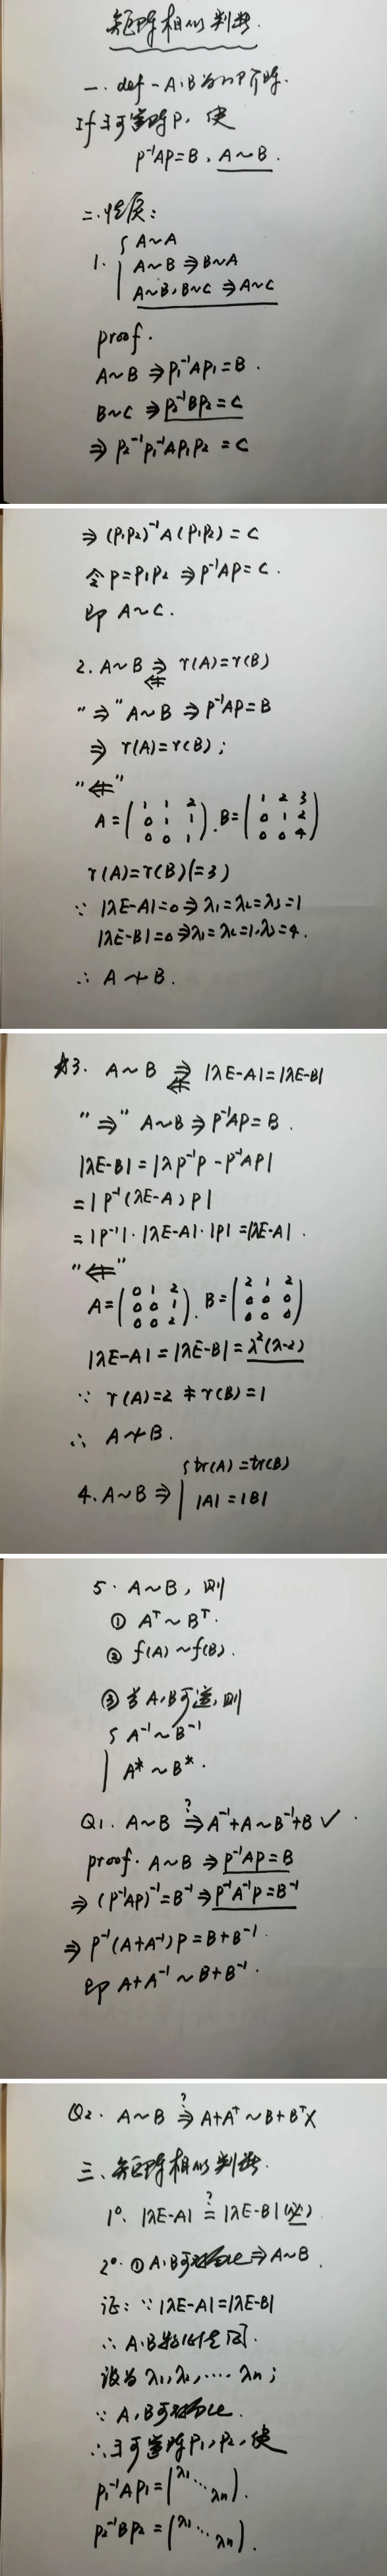 矩阵相似判断.
一. def - A,B为n阶阵.
If ∃可逆阵P, 使
P⁻¹AP=B, A~B.
二.性质:
{ A~A
1. | A~B ⇒ B~A
| A~B, B~C ⇒ A~C
proof.
A~B ⇒ P₁⁻¹AP₁=B.
B~C ⇒ P₂⁻¹BP₂=C
⇒ P₂⁻¹P₁⁻¹AP₁P₂ = C
⇒ (P₁P₂)⁻¹A(P₁P₂) = C
令P=P₁P₂ ⇒ P⁻¹AP=C.
即 A~C.
2. A~B ⇒ r(A)=r(B)
⇍
"⇒" A~B ⇒ P⁻¹AP=B
⇒ r(A)=r(B);
"⇍"
A=(1 1 2
0 1 1
0 0 1), B=(1 2 3
0 1 2
0 0 4)
r(A)=r(B)(=3)
∵ |λE-A|=0 ⇒ λ₁=λ₂=λ₃=1
|λE-B|=0 ⇒ λ₁=λ₂=1, λ₃=4.
∴ A≁B.
3. A~B ⇒ |λE-A|=|λE-B|
⇍
"⇒" A~B ⇒ P⁻¹AP=B.
|λE-B| = |λP⁻¹P - P⁻¹AP|
= |P⁻¹(λE-A)P|
= |P⁻¹|·|λE-A|·|P| = |λE-A|.
"⇍"
A=(0 1 2
0 0 1
0 0 2), B=(2 1 2
0 0 0
0 0 0)
|λE-A| = |λE-B| = λ²(λ-2)
∵ r(A)=2 ≠ r(B)=1
∴ A≁B.
4. A~B ⇒ { tr(A)=tr(B)
| |A|=|B|
5. A~B, 则
① Aᵀ~Bᵀ.
② f(A)~f(B).
③ 当A,B可逆,则
{ A⁻¹~B⁻¹
| A*~B*.
?
Q1. A~B ⇒ A⁻¹+A~B⁻¹+B ✓.
proof. A~B ⇒ P⁻¹AP=B
⇒ (P⁻¹AP)⁻¹=B⁻¹ ⇒ P⁻¹A⁻¹P=B⁻¹
⇒ P⁻¹(A+A⁻¹)P=B+B⁻¹.
即 A+A⁻¹~B+B⁻¹.
?
Q2. A~B ⇒ A+Aᵀ~B+Bᵀ ×
三、矩阵相似判断.
?
1°. |λE-A| = |λE-B| (必)
2°. ① A,B可对角化 ⇒ A~B.
证: ∵ |λE-A|=|λE-B|
∴ A,B特征值同.
设为 λ₁,λ₂,···· λn;
∵ A,B可对角化.
∴ ∃可逆阵P₁,P₂,使
P₁⁻¹AP₁=(λ₁ ⋱ λn).
P₂⁻¹BP₂=(λ₁ ⋱ λn).